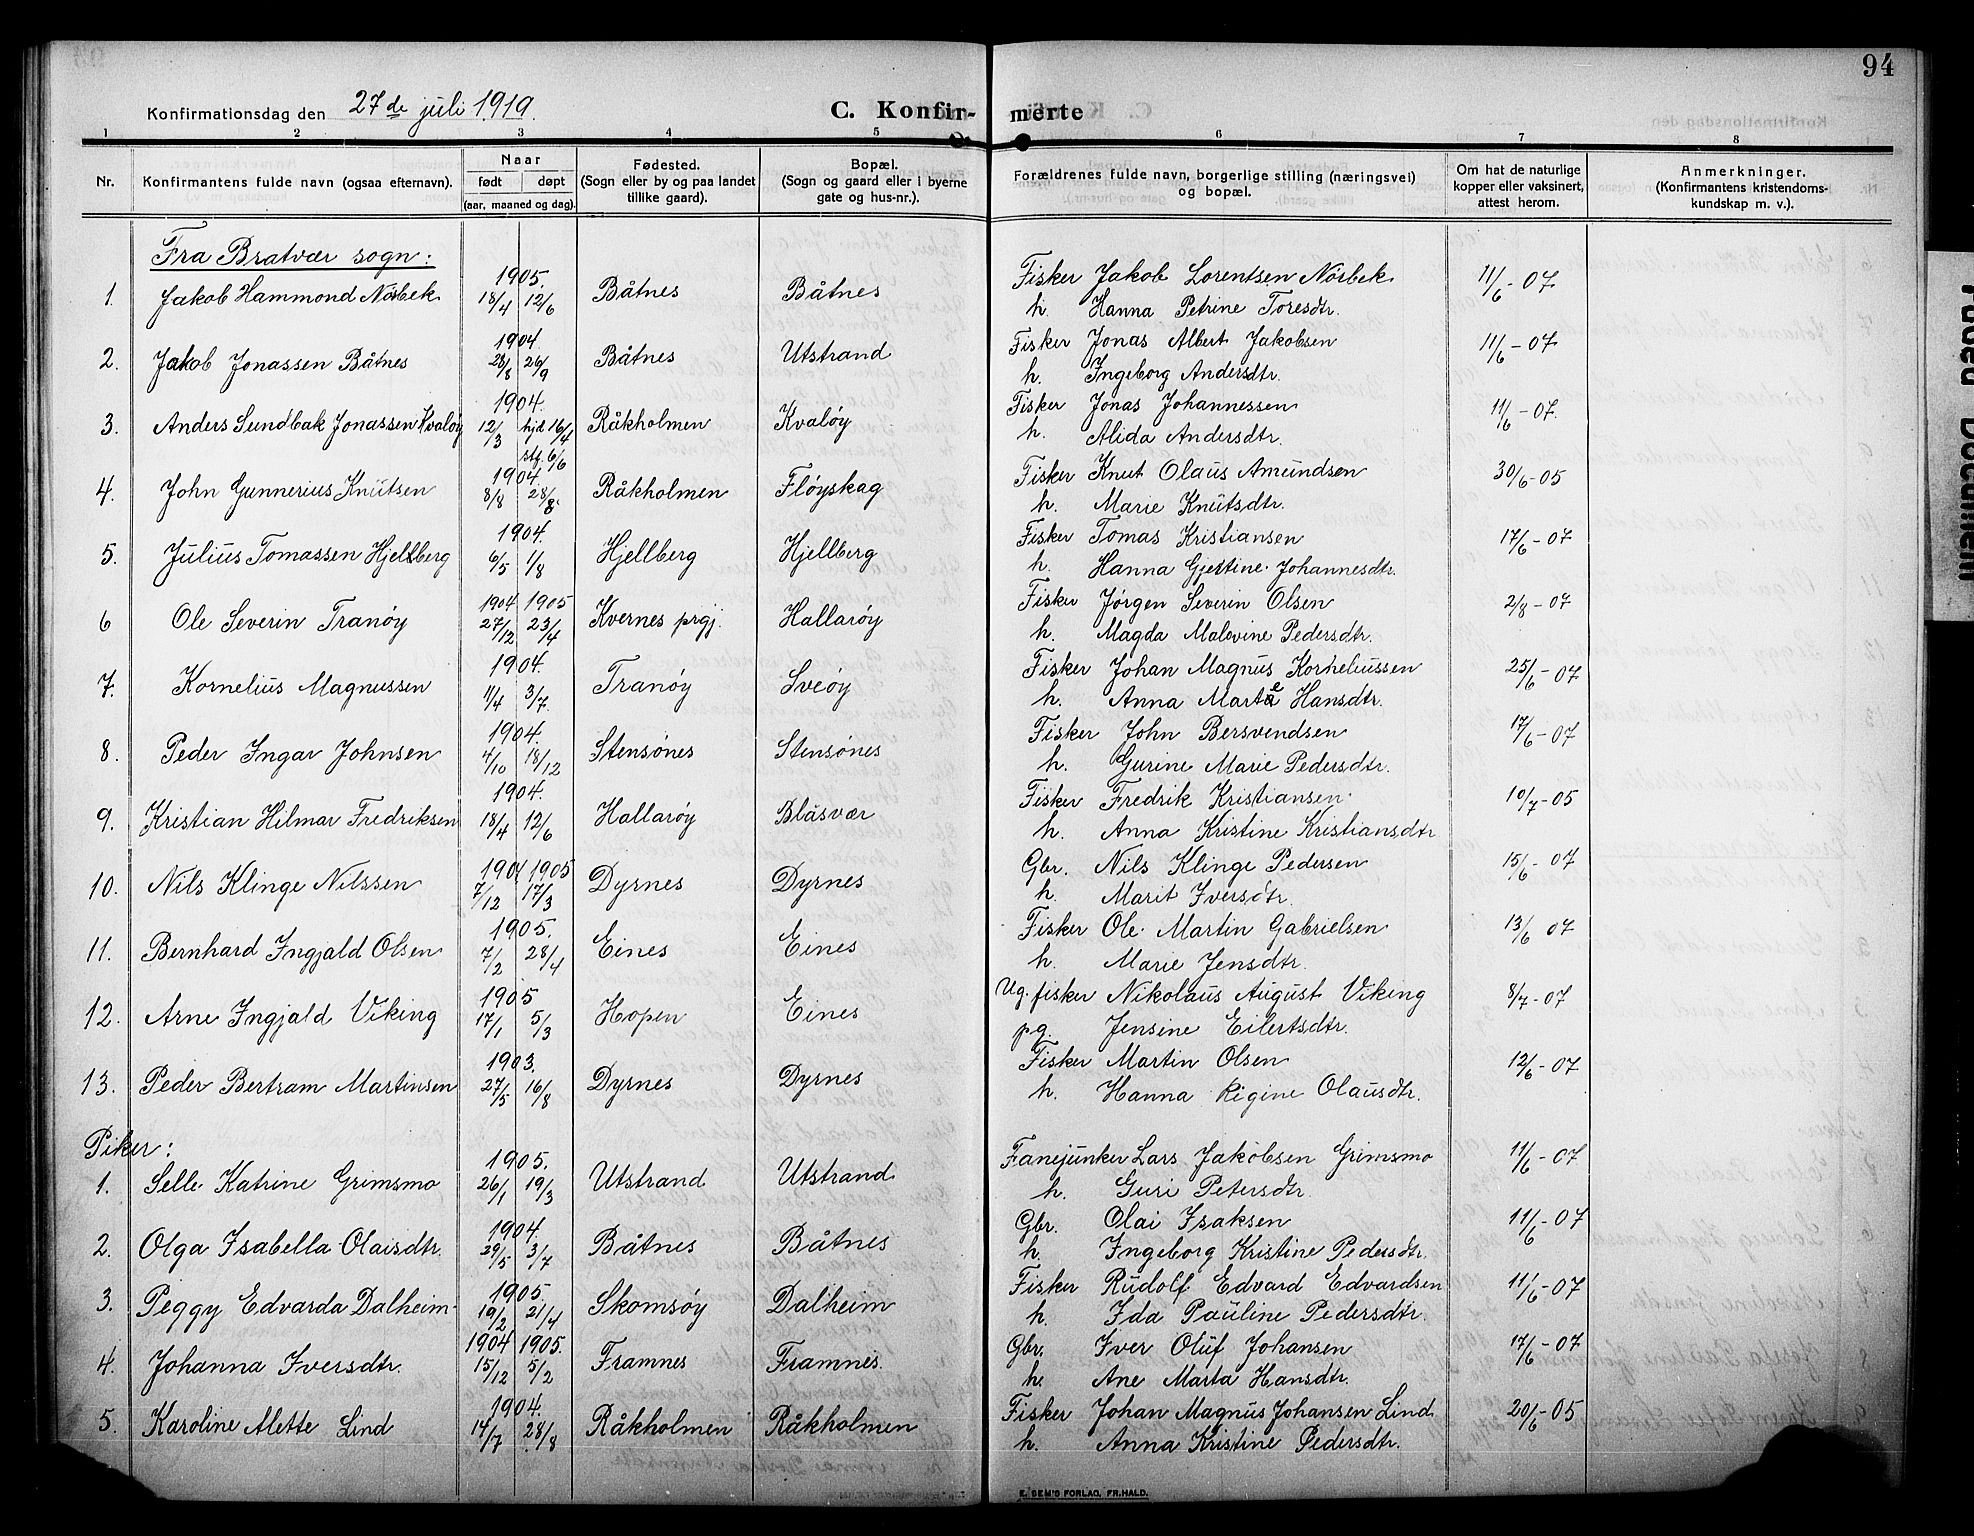 94
Konfirmationsdag den 27de juli 1919.
C. Konfirmerte
1 2 3 4 5 6 7 8
Nr. Konfirmantens fulde navn (ogsaa efternavn). Naar født døpt (aar, maaned og dag). Fødested. (Sogn eller by og paa landet tillike gaard). Bopæl. (Sogn og gaard eller i byerne gate og hus-nr.). Forældrenes fulde navn, borgerlige stilling (næringsvei) og bopæl. Om hat de naturlige kopper eller vaksinert, attest herom. Anmerkninger. (Konfirmantens kristendomskundskap m. v.).
Fra Bratvær sogn:
1. Jakob Hammond Nörbek 1905. 18/4 12/6 Båtnes Båtnes Fisker Jakob Lorentsen Nörbek 11/6-07
h. Hanna Petrine Toresdtr.
2. Jakob Jonassen Båtnes 1904. 28/8 26/9 Båtnes Utstrand Fisker Jonas Albert Jakobsen 11/6-07
h. Ingeborg Andersdtr.
3. Anders Sundbak Jonassen Kvaløy 1904. 12/3 hjd 16/4 stf. 6/6 Råkholmen Kvaløy Fisker Jonas Johannessen 11/6-07.
h. Alida Andersdtr.
4. John Gunnerius Knutsen 1904. 8/8 28/8. Råkholmen Fløyskag Fisker Knut Olaus Amundsen 30/6-05
h. Marie Knutsdtr.
5. Julius Tomassen Hjellberg 1904. 6/5 1/8 Hjellberg Hjellberg Fisker Tomas Kristiansen 17/6-07
h. Hanna Gjertine Johannesdtr.
6 Ole Severin Tranøy 1904 27/12 1905 23/4 Kvernes prgj. Hallarøy Fisker Jørgen Severin Olsen 2/8-07
h. Magda Malovine Pedersdtr.
7. Kornelius Magnussen 1904. 11/4 3/7 Tranøy Sveøy Fisker Johan Magnus Korneliussen 25/6-07
h. Anna Marte Hansdtr.
8. Peder Ingar Johnsen 1904. 4/10 18/12 Stensønes Stensønes Fisker John Bersvendsen 17/6-07
h. Gurine Marie Pedersdtr.
9. Kristian Hilmar Fredriksen 1904. 18/4 12/6 Hallarøy Blåsvær Fisker Fredrik Kristiansen 10/7-05
h. Anna Kristine Kristiansdtr
10. Nils Klinge Nilssen 1904 7/12 1905 17/3 Dyrnes Dyrnes Gbr. Nils Klinge Pedersen 15/6-07
h. Marit Iversdtr.
11. Bernhard Ingjald Olsen 1905. 7/2 28/4 Eines Eines Fisker Ole Martin Gabrielsen 13/6 07
h. Marie Jensdtr.
12. Arne Ingjald Viking 1905 17/1 5/3 Hopen Eines Ug. fisker Nikolaus August Viking 8/7-07
pg. Jensine Eilertsdtr.
13. Peder Bertram Martinsen 1903. 27/5 16/8 Dyrnes Dyrnes Fisker Martin Olsen 12/6-07
h. Hanna Regine Olausdtr.
Piker:
1. Selle Katrine Grimsmo 1905. 26/1 19/3 Utstrand Utstrand Fanejunker Lars Jakobsen Grimsmo 11/6-07
h. Guri Petersdtr.
2. Olga Isabella Olaisdtr. 1904. 29/5 3/7 Båtnes Båtnes Gbr. Olai Isaksen 11/6-07
h. Ingeborg Kristine Pedersdtr.
3. Peggy Edvarda Dalheim 1905. 19/2 21/4 Skomsøy Dalheim Fisker Rudolf Edvard Edvardsen 11/6-07
h. Ida Pauline Pedersdtr.
4. Johanna Iversdtr. 1904 15/12 1905. 5/2 Framnes Framnes. Gbr. Iver Oluf Johansen 17/6-07
h. Ane Marta Hansdtr.
5. Karoline Alette Lind 1904. 14/7 28/8 Råkholmen Råkholmen Fisker Johan Magnus Johansen Lind 20/6-05
h. Anna Kristine Pedersdtr.
E. SEM'S FORLAG, FR.HALD.